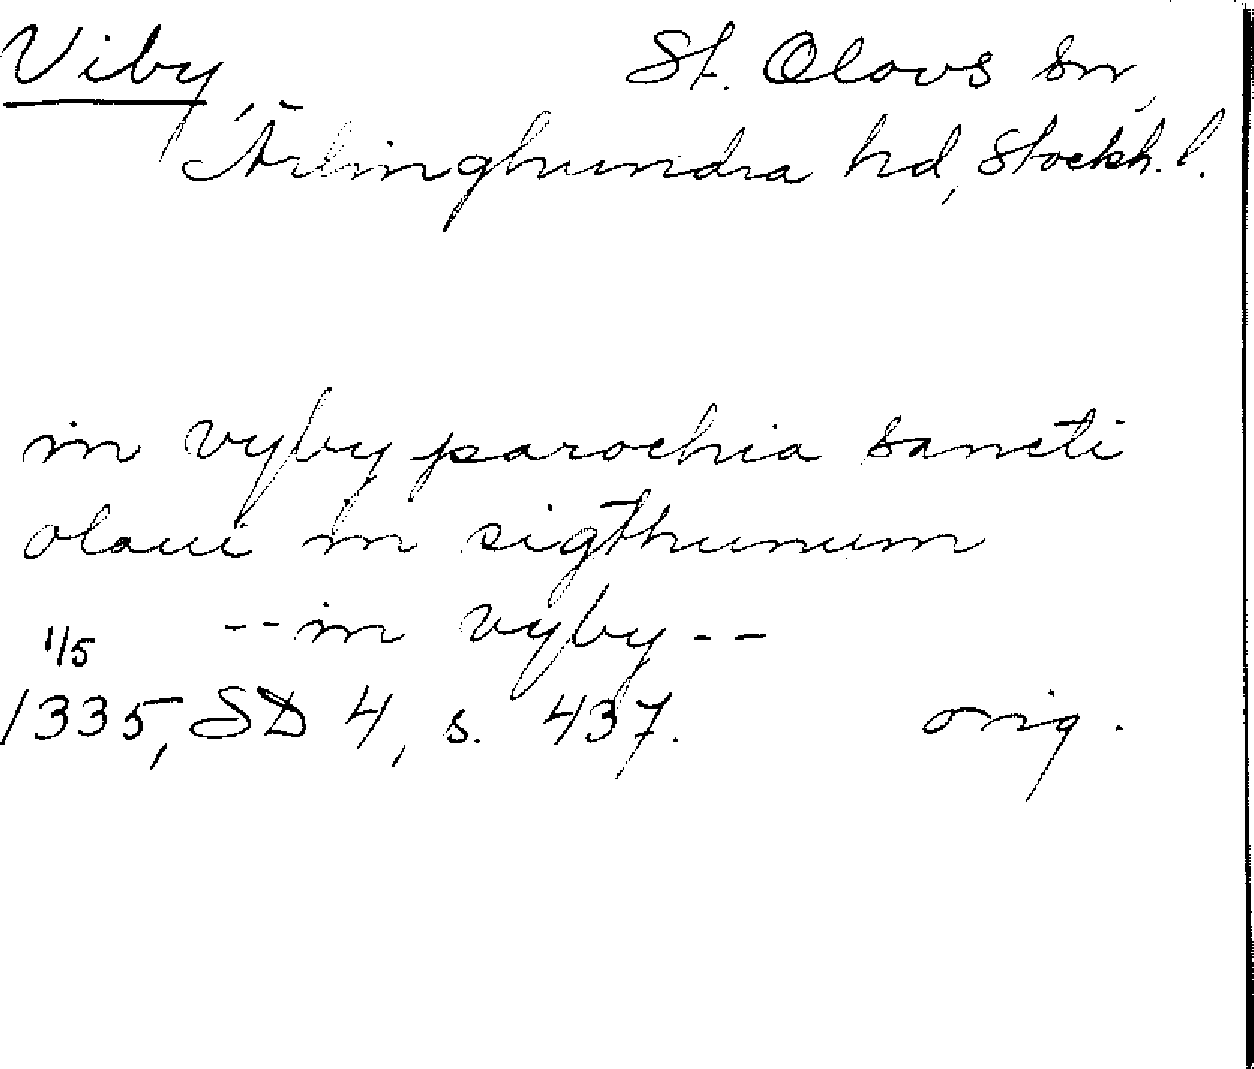 Viby, St. Olovs sn,
Ärlinghundra hd, Stockh. l.
in vyby parochia sancti
olaui in sigthunum
-- in vyby --
1/5
1335, SD 4, s. 437. orig.